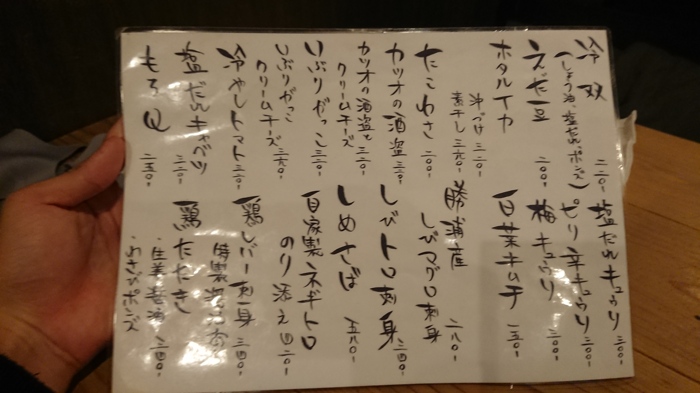 冷奴 二二〇-
(しょうゆ・塩だれ・ポンズ)
えだ豆 二〇〇-
ホタルイカ
沖づけ 三二〇-
素干し 三五〇-
たこわさ 二〇〇-
カツオの酒盗 三二〇-
カツオの酒盗と
クリームチーズ 三二〇-
いぶりがっこ 三二〇-
いぶりがっこ
クリームチーズ 三六〇-
冷やしトマト 三二〇-
塩だれキャベツ 三二〇-
もろQ 二五〇-
塩だれキュウリ 三〇〇-
ピリ辛キュウリ 三〇〇-
梅キュウリ 二〇〇-
白菜キムチ 二五〇-
勝浦産
しびマグロ刺身 二八〇-
しびトロ刺身 三四〇-
しめさば 五八〇-
自家製ネギトロ
のり添え 四二〇-
鶏レバー刺身 三四〇-
鶏たたき
・生姜醤油 三四〇-
・わさびポンズ